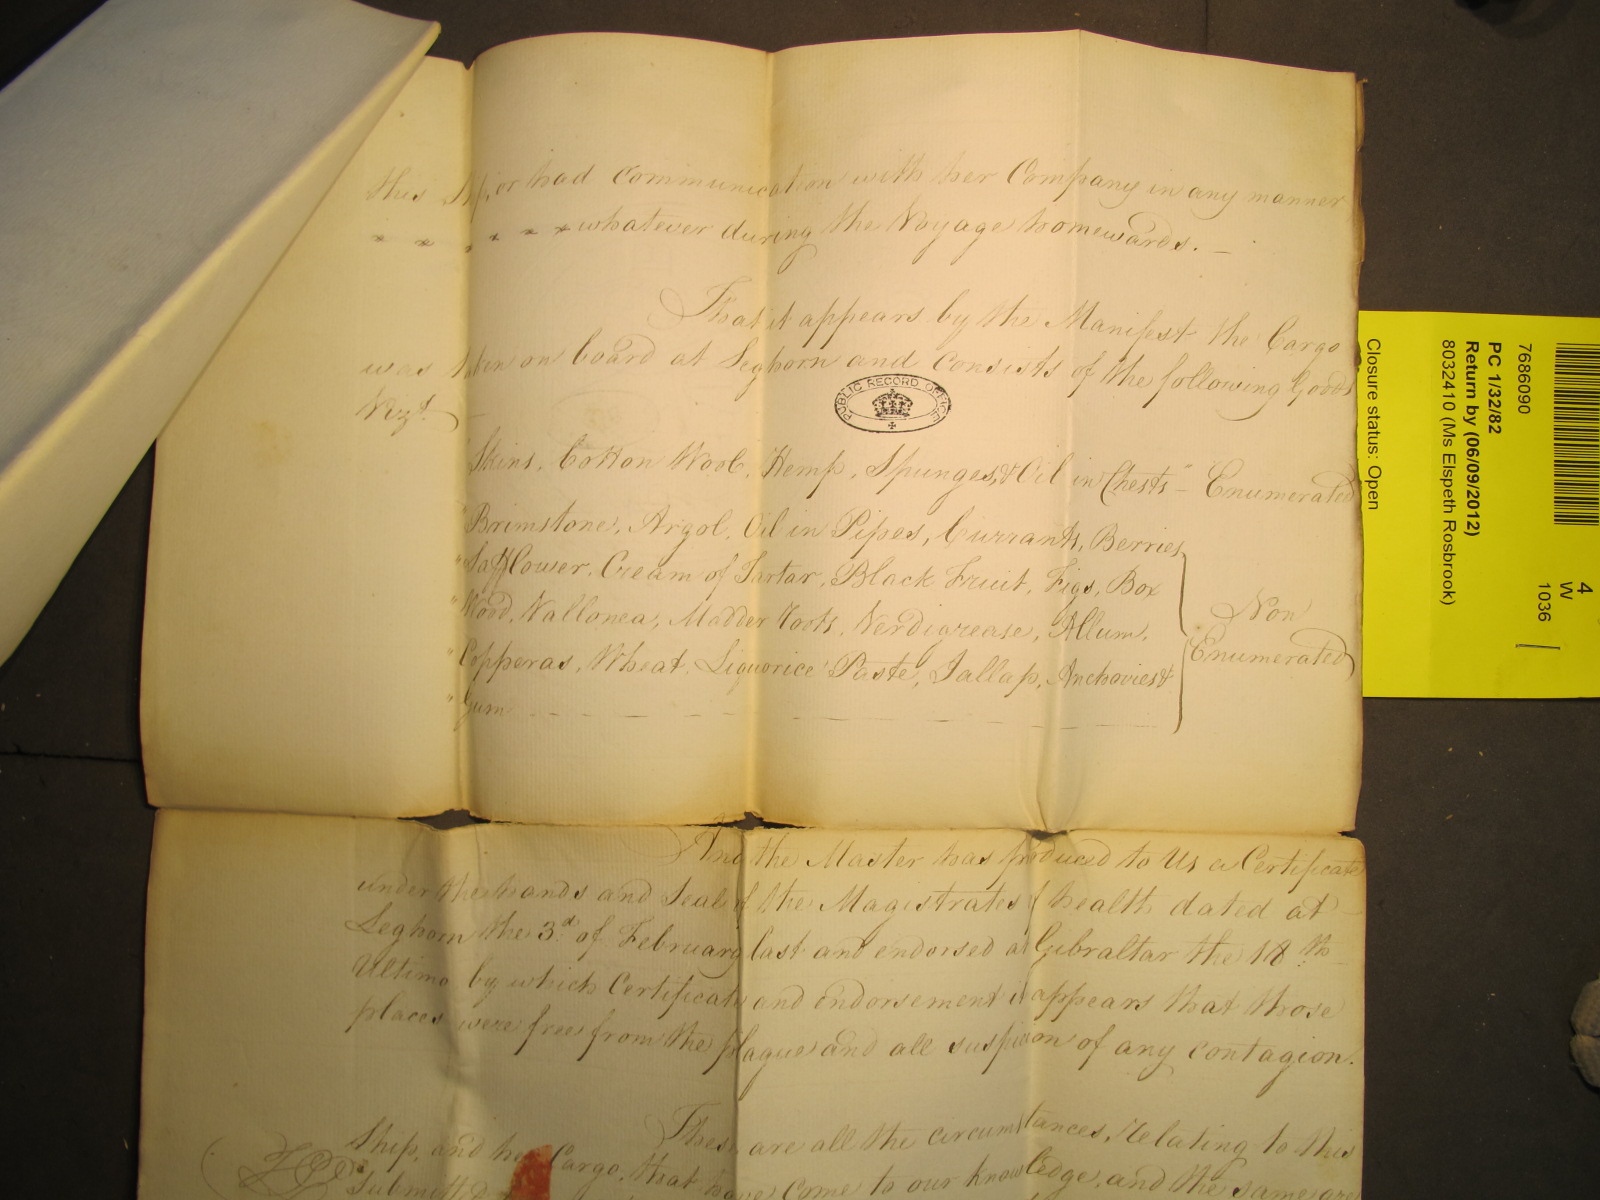 this Ship, or had Communication with her Company in any manner
whatever during the Voyage homewards.
That it appears by the Manifest the Cargo
was taken on board at Leghorn and consists of the following Goods
Vizt.
Skins, Cotton Wool, Hemp, Spunges, & Oil in Chests - Enumerated
Brimstone, Argol, Oil in Pipes, Currants, Berries
Safflower, Cream of Tartar, Black Fruit, Figs, Box
Wood, Vallonea, Madder Roots, Verdigrease, Allum,
Copperas, Wheat, Liquorice Paste, Jallap, Anchovies &
Gum
Non
Enumerated
PUBLIC RECORD OFFICE
And the Master has produced to Us a Certificate
under the hands and Seal of the Magistrates of health dated at
Leghorn the 3d. of February last and endorsed at Gibraltar the 18th
Ultimo by which Certificate and endorsement it appears that those
places were free from the plague and all suspicion of any contagion.
These are all the circumstances, relating to this
Ship, and her Cargo, that have come to our knowledge, and the same are
Submitted
7686090
PC 1/32/82
Return by (06/09/2012)
8032410 (Ms Elspeth Rosbrook)
Closure status: Open
4
W
1036